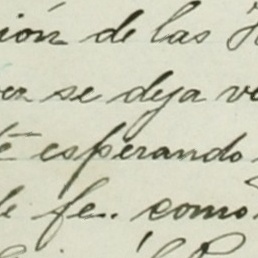 ión de las
se deja ve
té esperando
le fe.. como